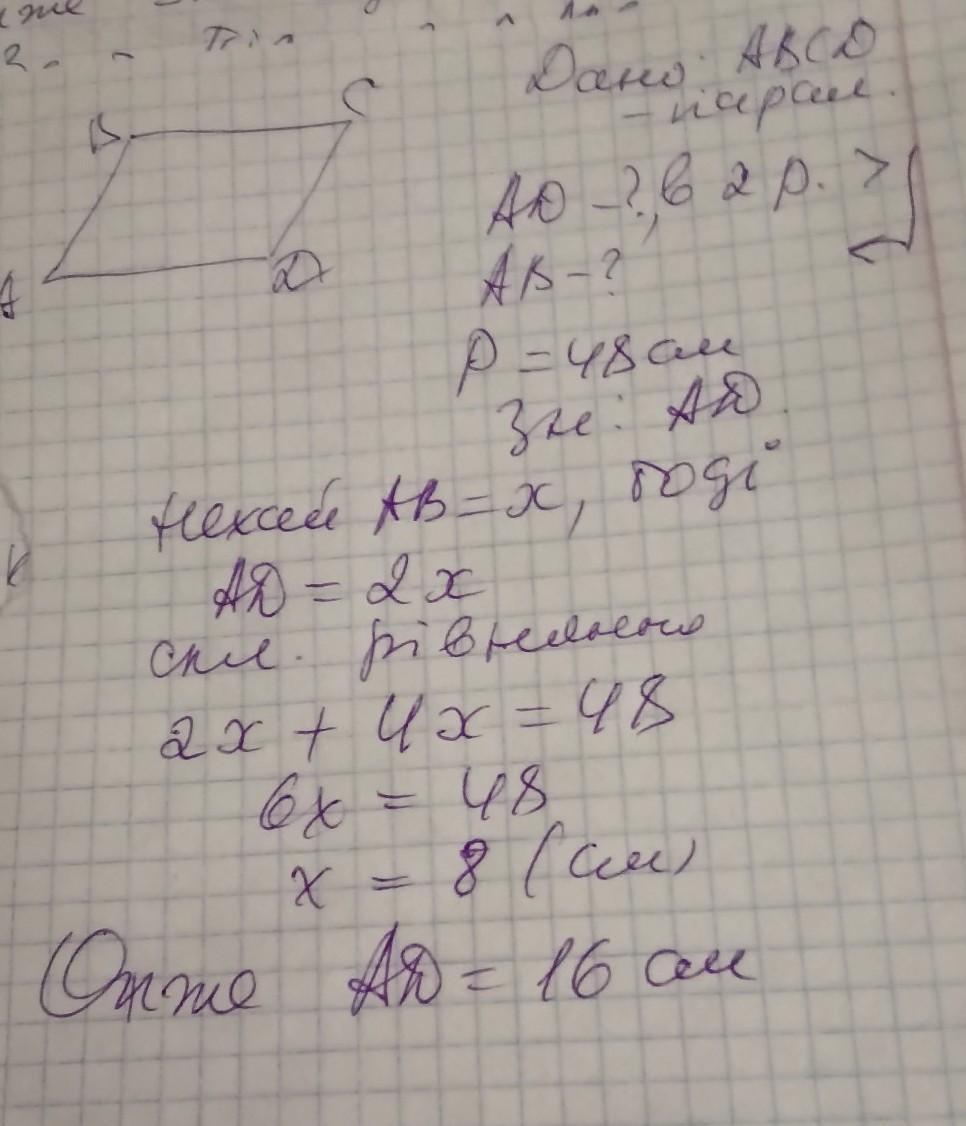 же
B
C
A
D
Дано: ABCD
- парал.
AD - ?, в 2 р. >
AB - ?
P = 48 см
Зн: AD
Нехай AB = x, тоді
AD = 2x
скл. рівняння
2x + 4x = 48
6x = 48
x = 8 (см)
Отже AD = 16 см